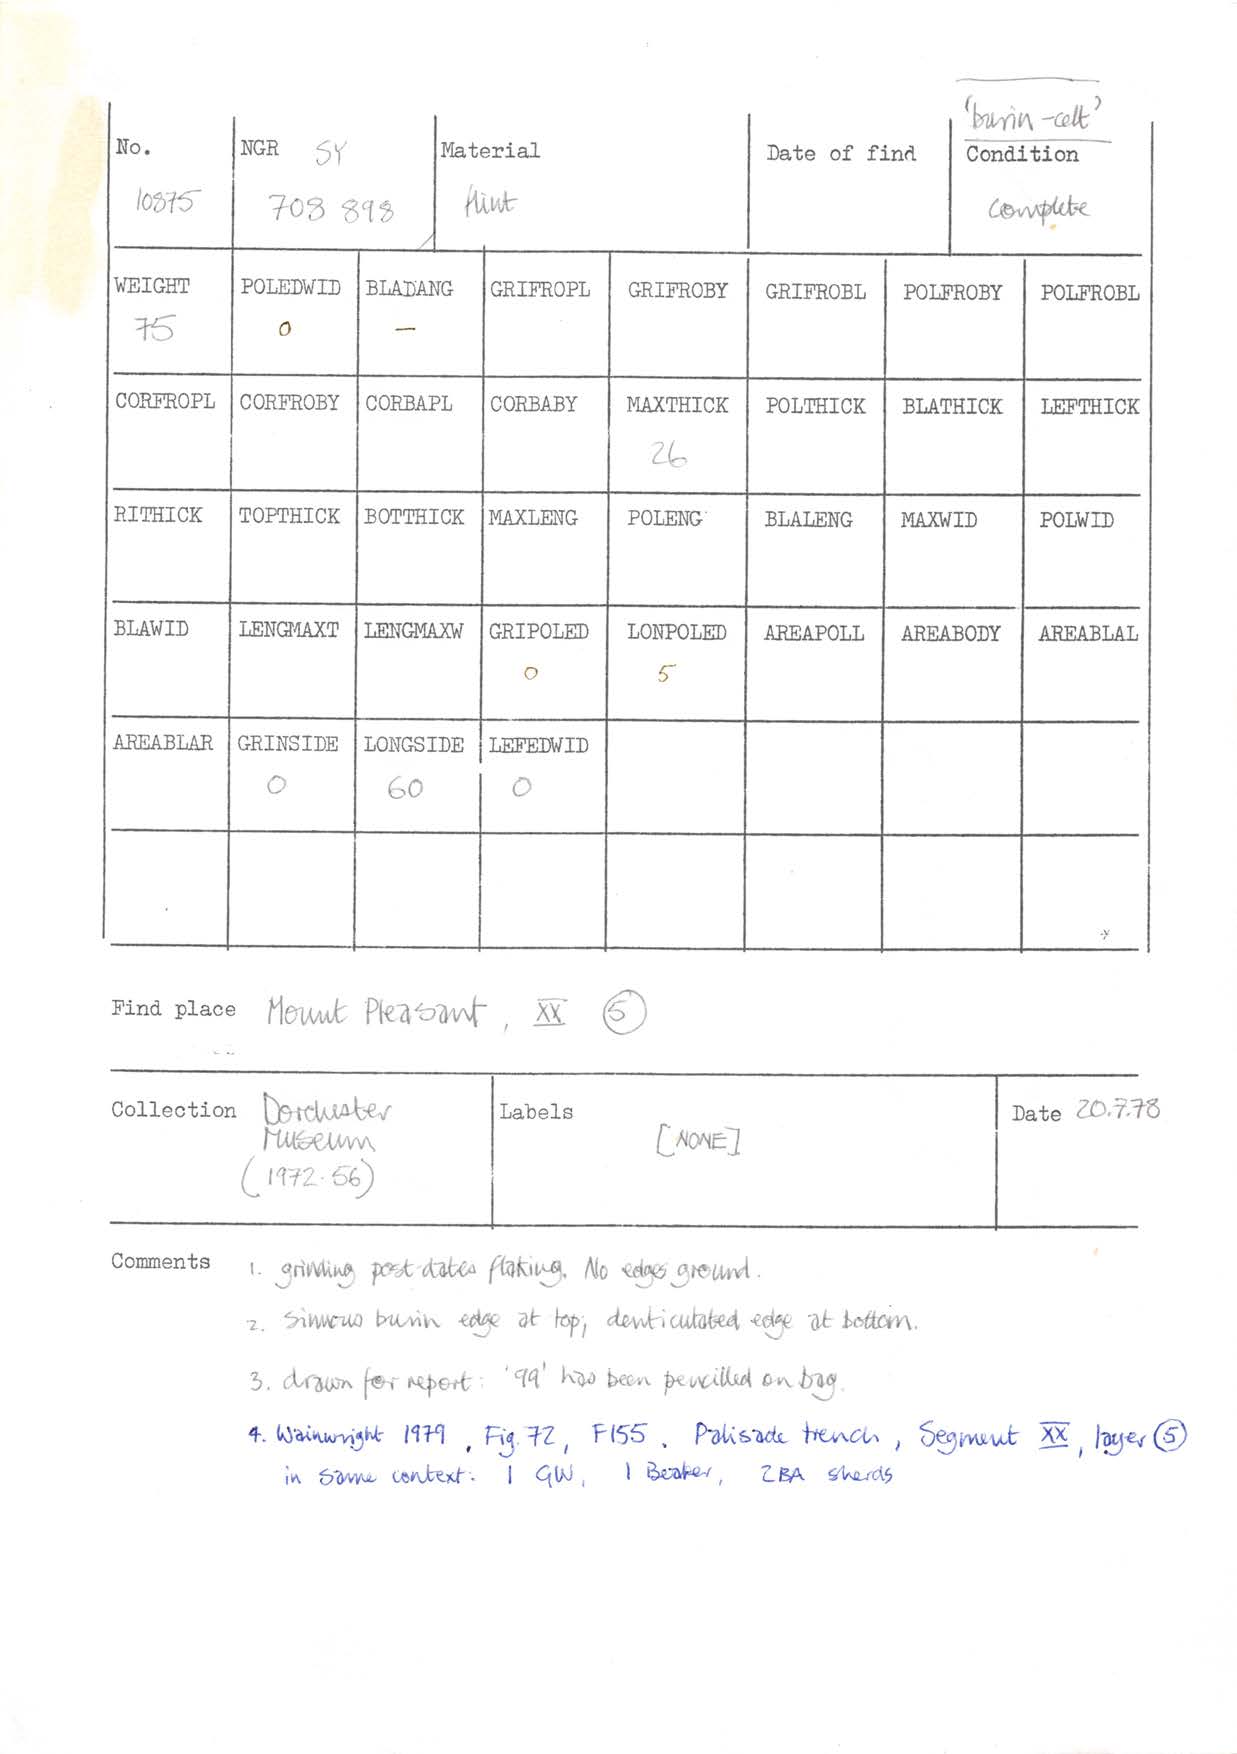 'burin-celt'
No. NGR SY Material Date of find Condition
10875 708 898 flint complete
WEIGHT POLEDWID BLADANG GRIFROPL GRIFROBY GRIFROBL POLFROBY POLFROBL
75 0 —
CORFROPL CORFROBY CORBAPL CORBABY MAXTHICK POLTHICK BLATHICK LEFTHICK
26
RITHICK TOPTHICK BOTTHICK MAXLENG POLENG BLALENG MAXWID POLWID
BLAWID LENGMAXT LENGMAXW GRIPOLED LONPOLED AREAPOLL AREABODY AREABLAL
0 5
AREABLAR GRINSIDE LONGSIDE LEFEDWID
0 60 0
Find place Mount Pleasant, XX (5)
Collection Dorchester Labels Date 20.7.78
Museum [NONE]
(1972.56)
Comments 1. grinding post-dates flaking. No edges ground.
2. Sinuous burin edge at top; denticulated edge at bottom.
3. drawn for report: '99' has been pencilled on bag.
4. Wainwright 1979, Fig. 72, F155. Palisade trench, Segment XX, layer (5)
in same context: 1 GW, 1 Beaker, 2BA sherds